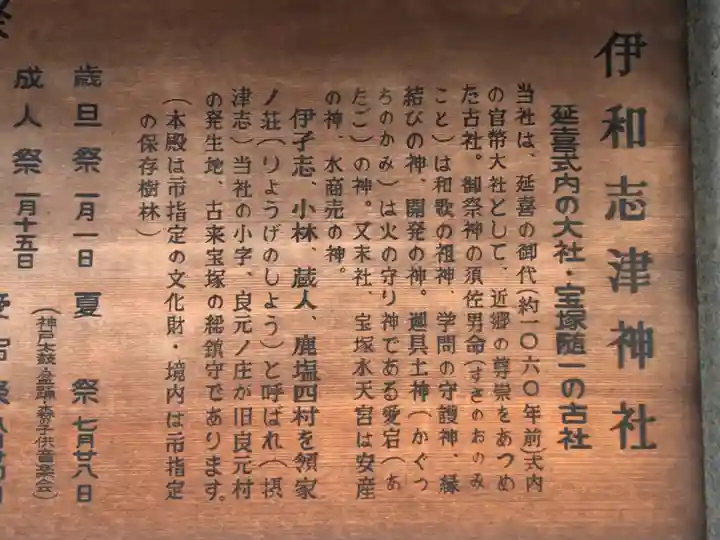 伊和志津神社
延喜式内の大社・宝塚随一の古社
当社は、延喜の御代(約一〇六〇年前)式内
の官幣大社として、近郷の尊崇をあつめ
た古社。御祭神の須佐男命(すさのおのみ
こと)は和歌の祖神、学問の守護神、縁
結びの神、開発の神。迦具土神(かぐつ
ちのかみ)は火の守り神である愛宕(あ
たご)の神。又末社、宝塚水天宮は安産
の神、水商売の神。
伊孑志、小林、蔵人、鹿塩四村を領家
ノ荘(りょうげのしょう)と呼ばれ(摂
津志)当社の小字、良元ノ庄が旧良元村
の発生地、古来宝塚の総鎮守であります。
(本殿は市指定の文化財・境内は市指定
の保存樹林)
歳旦祭 一月一日 夏祭 七月廿八日
(神戸太鼓・盆踊・森の子供音楽会)
成人祭 一月十五日
祭